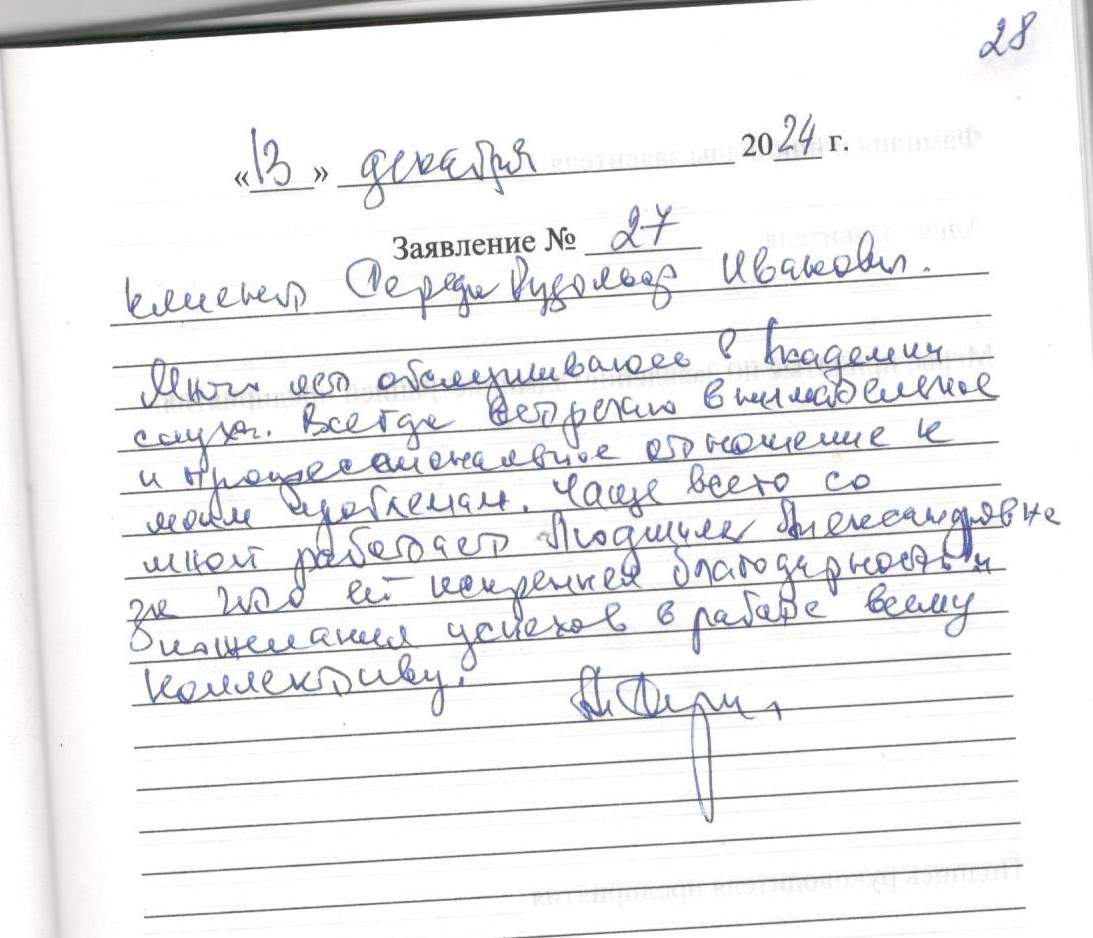 28
«13» декабря 2024 г.
Заявление № 27
клиент Рудольф Иванович.
Много лет обслуживаюсь в Академии
слуха. Всегда встречаю внимательное
и профессиональное отношение к
моим проблемам. Чаще всего со
мной работает Людмила Александровна
за что ей искренняя благодарность и
пожелания успехов в работе всему
коллективу.